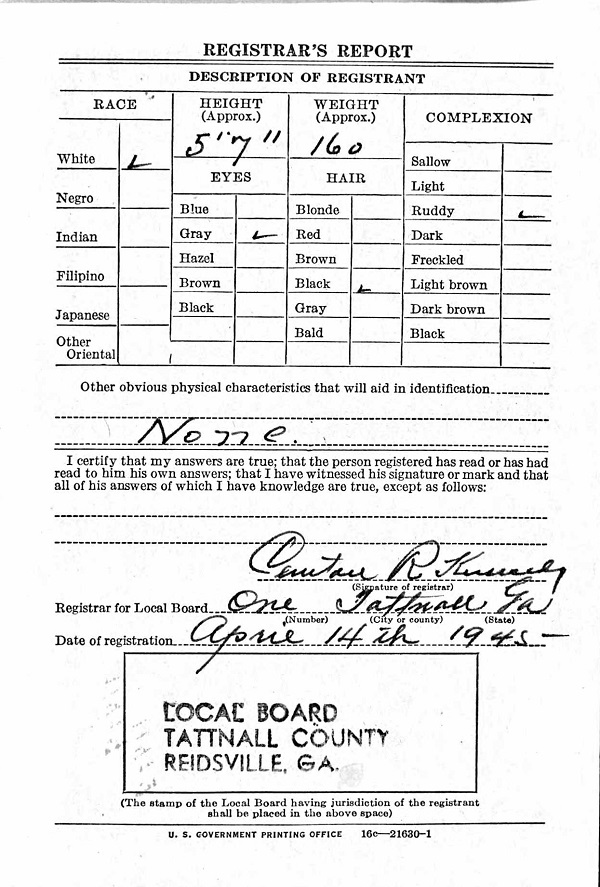 REGISTRAR'S REPORT
DESCRIPTION OF REGISTRANT
RACE
HEIGHT
(Approx.)
WEIGHT
(Approx.)
COMPLEXION
5' 7"
160
EYES
HAIR
White ✓
Negro
Indian
Filipino
Japanese
Other
Oriental
Blue
Gray ✓
Hazel
Brown
Black
Blonde
Red
Brown
Black ✓
Gray
Bald
Sallow
Light
Ruddy ✓
Dark
Freckled
Light brown
Dark brown
Black
Other obvious physical characteristics that will aid in identification
None.
I certify that my answers are true; that the person registered has read or has had
read to him his own answers; that I have witnessed his signature or mark and that
all of his answers of which I have knowledge are true, except as follows:
R.
(Signature of registrar)
Registrar for Local Board One Tattnall Ga
(Number) (City or county) (State)
Date of registration April 14th 1945
LOCAL BOARD
TATTNALL COUNTY
REIDSVILLE, GA.
(The stamp of the Local Board having jurisdiction of the registrant
shall be placed in the above space)
U. S. GOVERNMENT PRINTING OFFICE 16c—21630-1